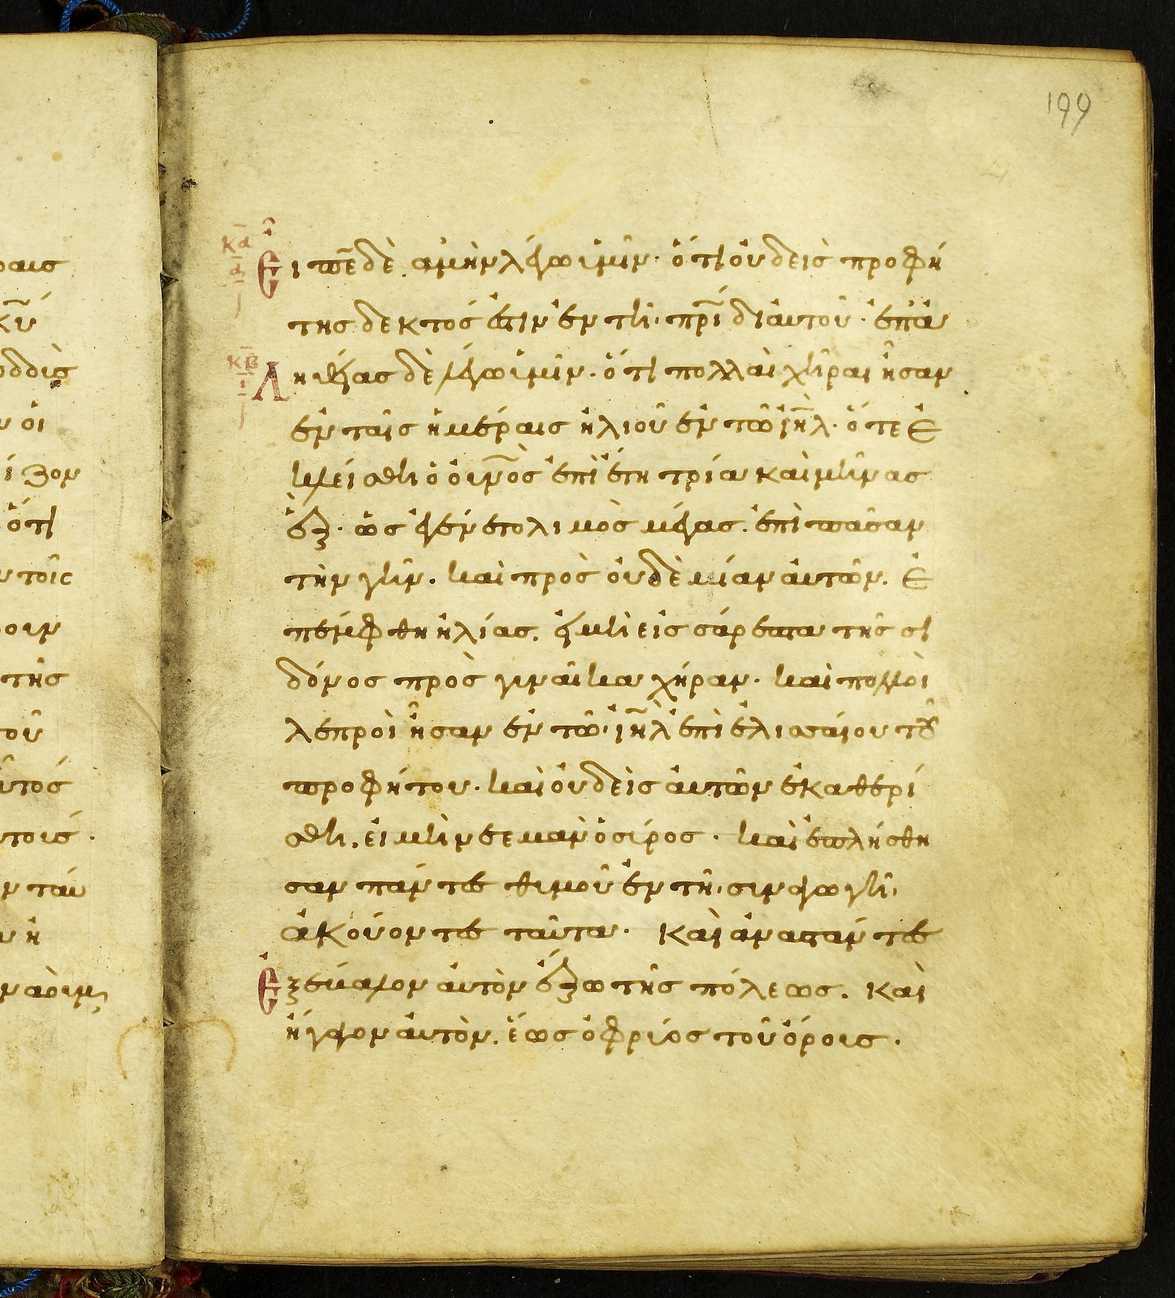 199
κα
α
Εἶπε δὲ. ἀμὴν λέγω ϊμῖν· ὅτι οὐδεὶσ προφή
της δεκτός ἐστιν ἐν τῆ· πρΐδι ἀυτοῦ· ἐπʼ ἀ
κβ
ι
Ληθείας δὲ λέγω ϊμῖν· ὅτι πολλαὶ χῆραι ἦσαν
ἐν ταῖς ἡμέραις ἡλιοῦ ἐν τῶ ϊηλ· ὅτε ἐ
κλείσθη ὁ οὐνοσ ἐπὶ ἔτη τρία καὶ μῆνας
ἕξ· ὡς ἐγένετο λιμὸς μέγας· ἐπὶ πᾶσαν
τὴν γῆν. καὶ πρὸς οὐδεμίαν ἀυτῶν. ἐ
πέμφθη ἡλίας. εἰ μὴ εἰς σάρεπτα τῆς σι
δόνος πρὸς γιναῖκα χήραν· καὶ πολλοὶ
λεπροὶ ἦσαν ἐν τῶ· ϊηλ ἐπὶ ἐλισσαίου τοῦ
προφήτου· καὶ οὐδεὶς ἀυτῶν ἐκαθερί
σθη. εἰ μὴ νεεμὰν ὁ σίρος· καὶ ἐπλήσθη
σαν πάντες θιμοῦ ἐν τῆ· σιναγωγῆ·
ἀκούοντες ταῦτα· Καὶ ἀναστάντες
Ἐξέβαλον ἀυτὸν ἔξω τῆς πόλεως. καὶ
ἤγαγον ἀυτὸν. ἕως ὀφρίος τοῦ ὄροις·
ραισ
κυ
οδδιὸ
οἱ
ίζον
ὅτι
τοῖς
οιν
τῆς
τοῦ
ἀυτός
υτοις·
ταύ
ἡ